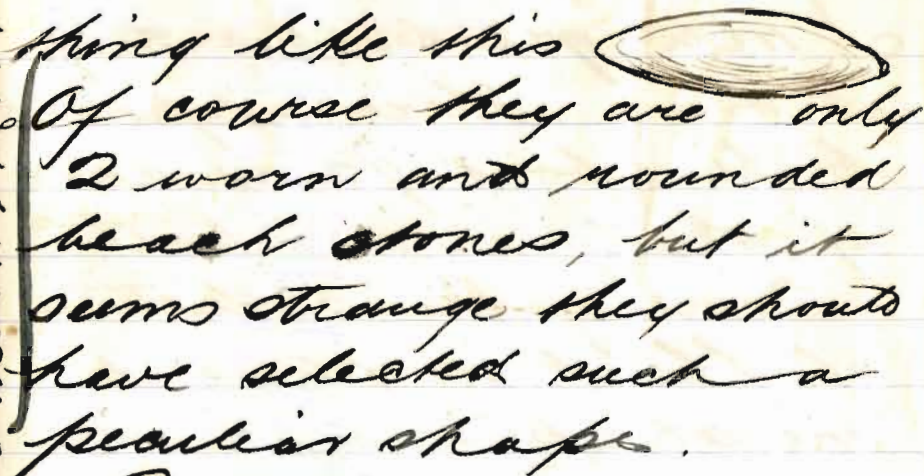 thing like this
Of course they are only
2 worn and rounded
beach stones, but it
seems strange they should
have selected such a
peculiar shape.